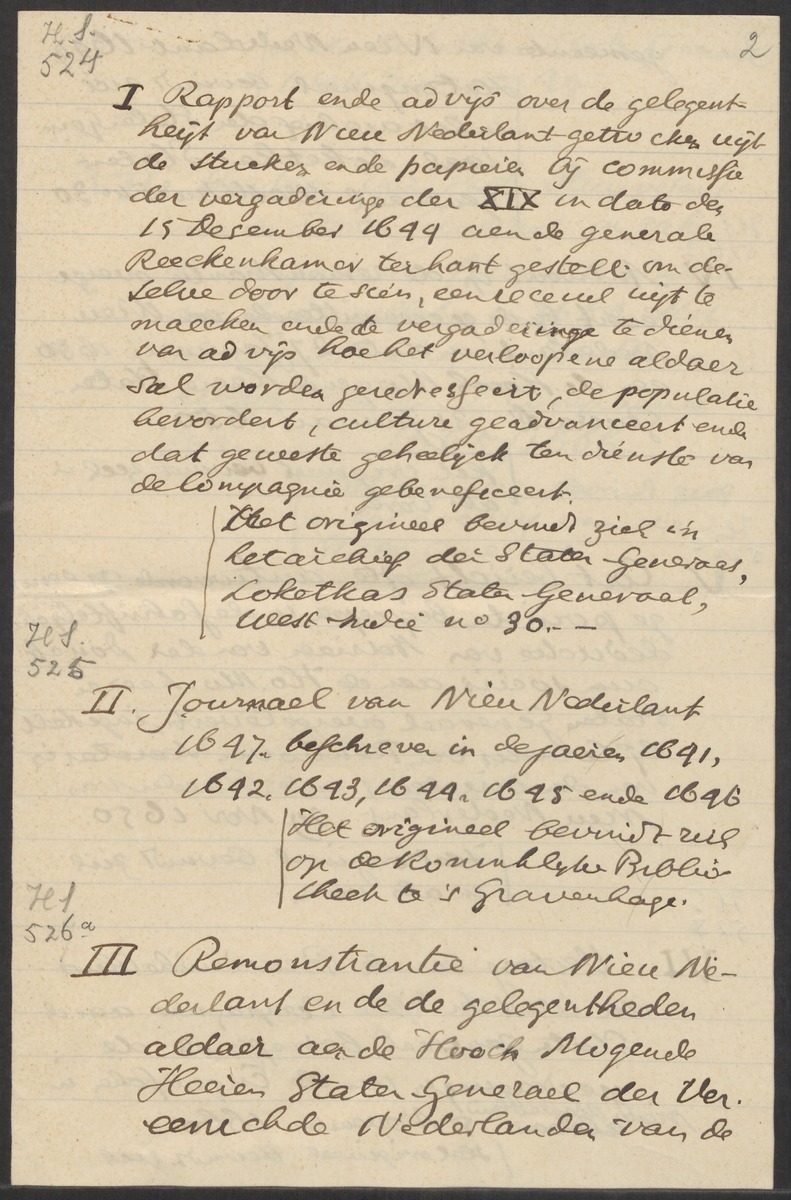 HS.
524
2
I Rapport ende advijs over de gelegent-
heijt van Nieu Nederlant getrocken uijt
de stucken ende papieren bij commissie
der vergaderinge der XIX in dato den
15 Desember 1644 aen de generale
Reeckenkamer ter hant gestelt om de-
selve door te sien, een recenul uijt te
maecken ende de vergaderinge te dienen
van advijs hoe het verloopene aldaer
sal worden geredresseert, de populatie
bevordert, culture geadvanceert ende
dat geweste geheelijck ten dienste van
de Compagnie gebeneficeert.
Het origineel bevindt zich in
het archief der Staten Generaal,
Loketkas Staten Generaal,
West Indië no 30.- -
HS.
525
II. Journael van Nieu Nederlant
1647. beschreven in de jaeren 1641,
1642. 1643, 1644. 1645 ende 1646
Het origineel bevindt zich
op de Koninklijke Biblio-
theek te 's Gravenhage.
HS
526a
III Remonstrantie van Nieu Ne-
derlant ende de gelegentheden
aldaer aen de Hooch Mogende
Heeren Staten Generael der Ver.
eenichde Nederlanden van de